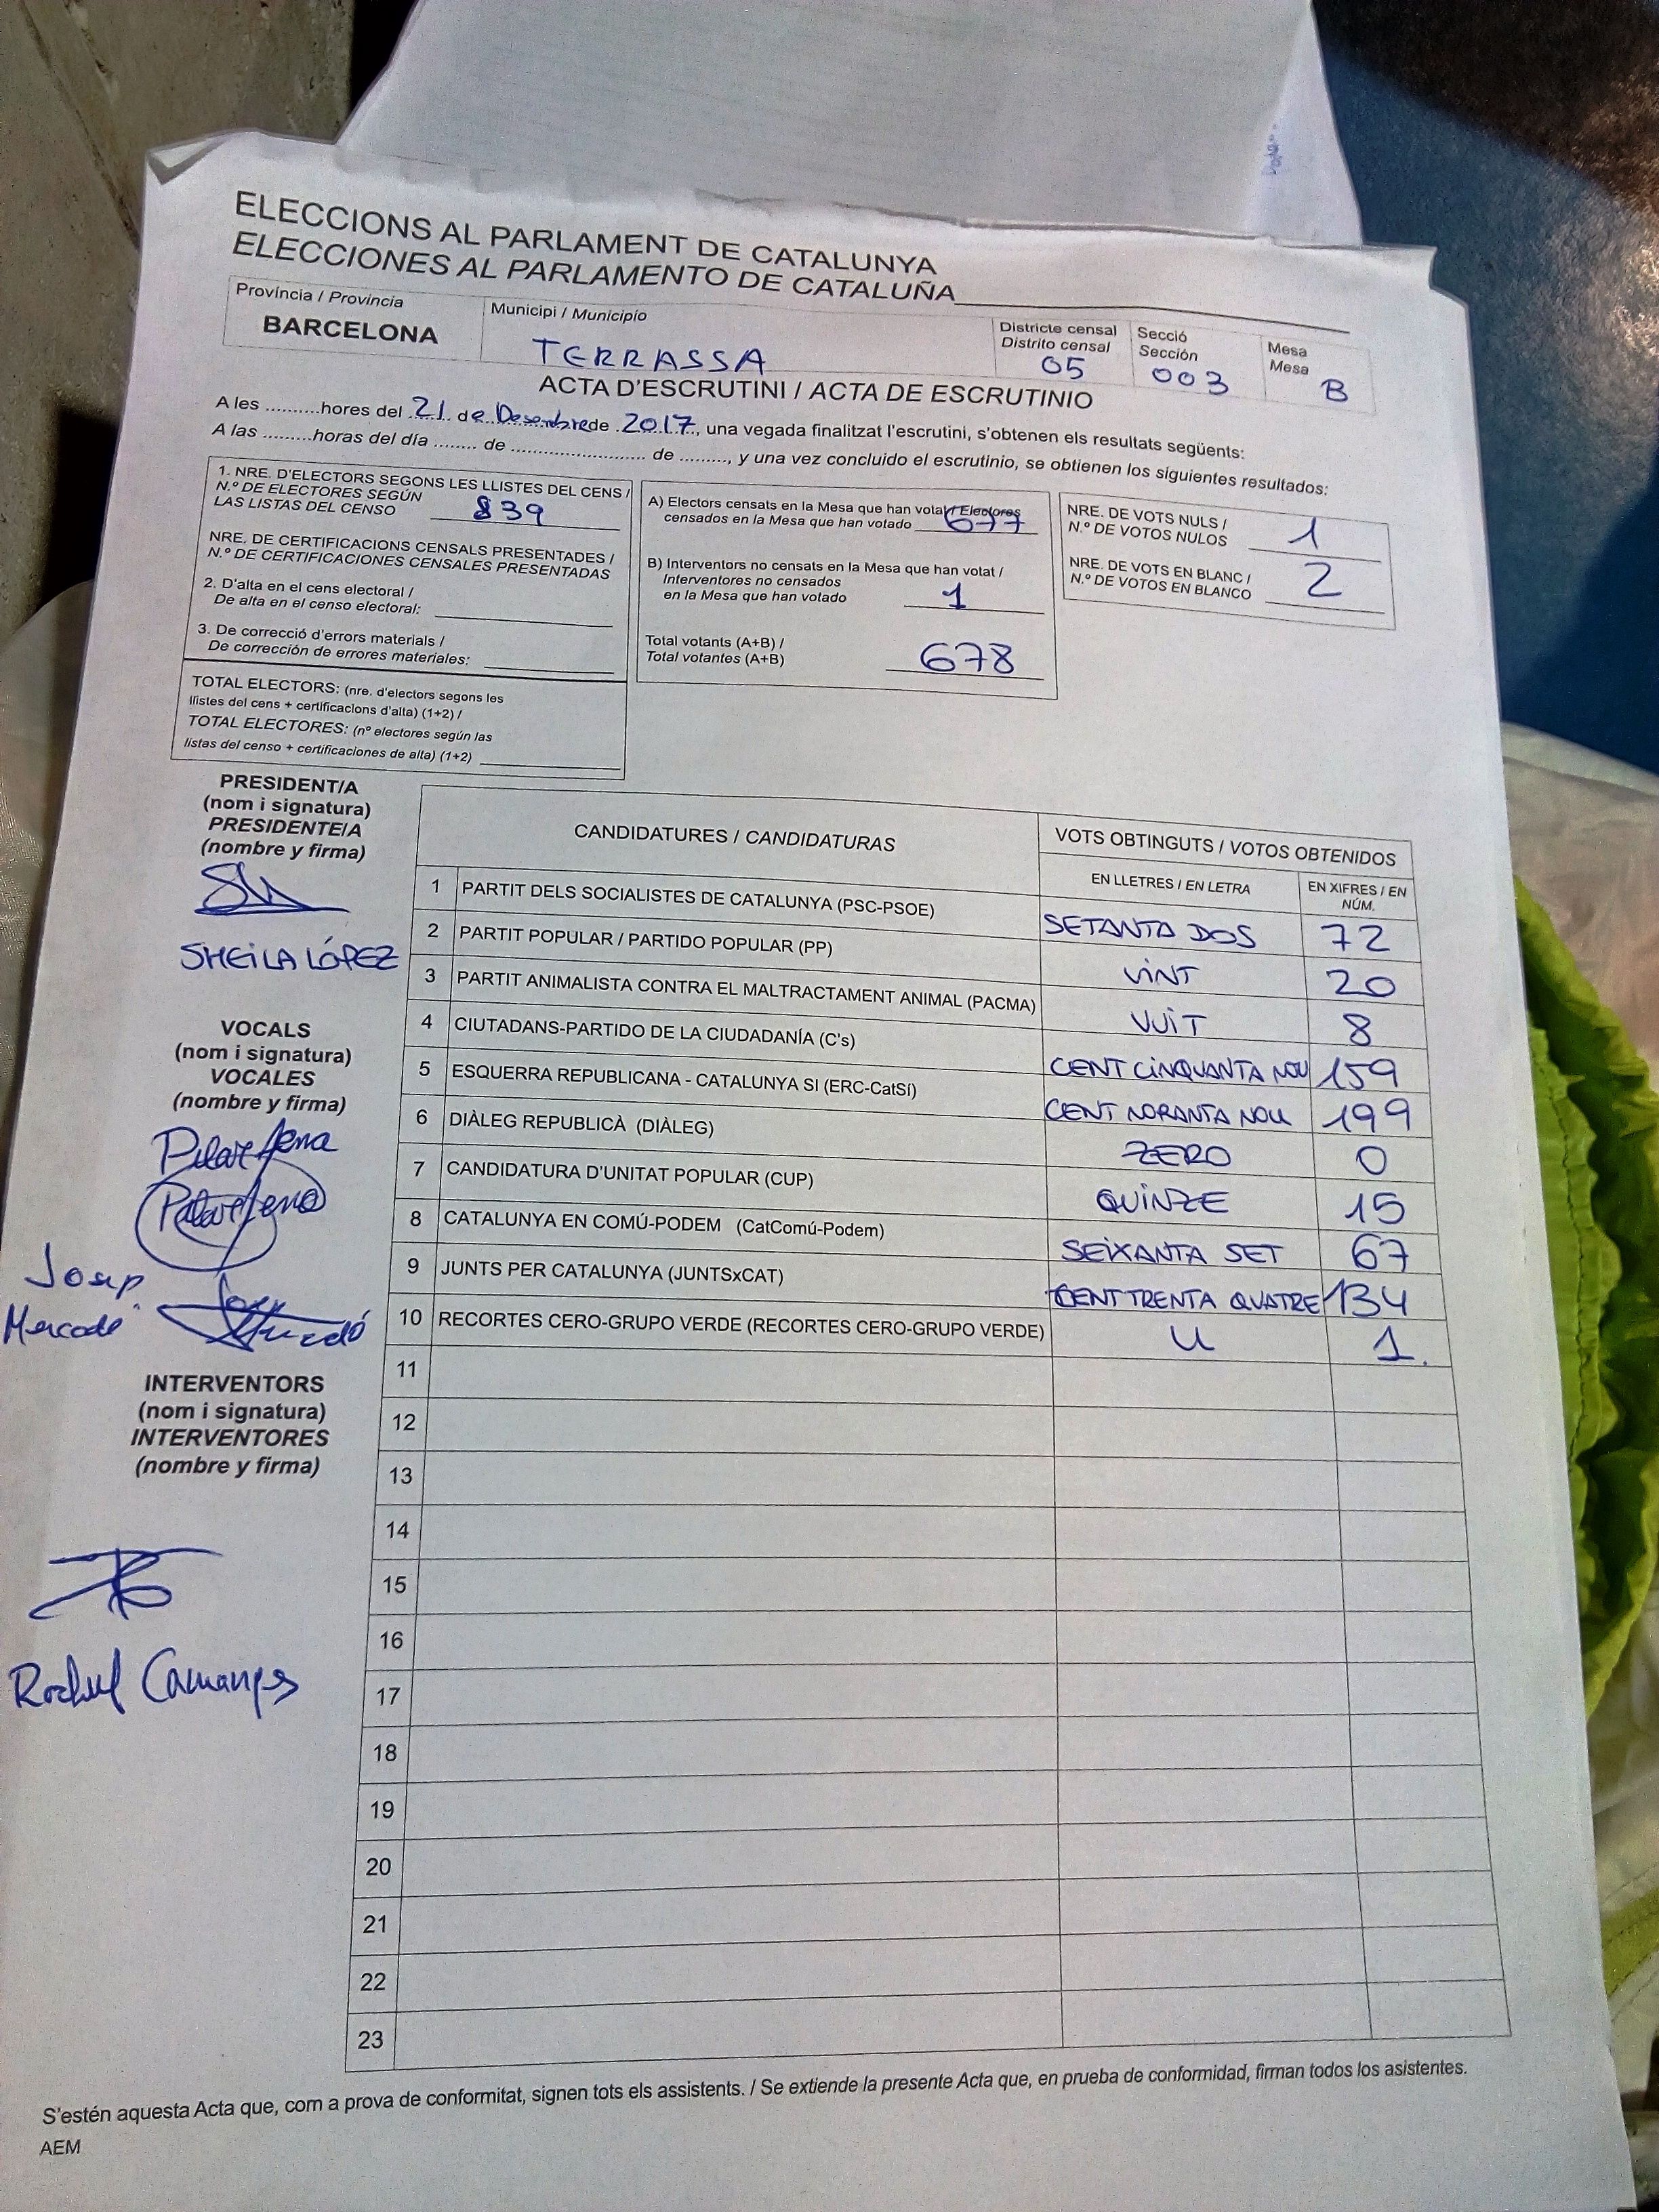 ELECCIONS AL PARLAMENT DE CATALUNYA
ELECCIONES AL PARLAMENTO DE CATALUÑA
Província / Provincia
BARCELONA
Municipi / Municipio
TERRASSA
Districte censal
Distrito censal
05
Secció
Sección
003
Mesa
Mesa
B
ACTA D'ESCRUTINI / ACTA DE ESCRUTINIO
A les ..........hores del 21 de Desembre de 2017, una vegada finalitzat l'escrutini, s'obtenen els resultats següents:
A las .........horas del día ........ de ......................... de ........., y una vez concluido el escrutinio, se obtienen los siguientes resultados:
1. NRE. D'ELECTORS SEGONS LES LLISTES DEL CENS /
N.º DE ELECTORES SEGÚN
LAS LISTAS DEL CENSO 839
NRE. DE CERTIFICACIONS CENSALS PRESENTADES /
N.º DE CERTIFICACIONES CENSALES PRESENTADAS
2. D'alta en el cens electoral /
De alta en el censo electoral:
3. De correcció d'errors materials /
De corrección de errores materiales:
TOTAL ELECTORS: (nre. d'electors segons les
llistes del cens + certificacions d'alta) (1+2) /
TOTAL ELECTORES: (nº electores según las
listas del censo + certificaciones de alta) (1+2)
A) Electors censats en la Mesa que han votat / Electores
censados en la Mesa que han votado 677
B) Interventors no censats en la Mesa que han votat /
Interventores no censados
en la Mesa que han votado 1
Total votants (A+B) /
Total votantes (A+B) 678
NRE. DE VOTS NULS /
N.º DE VOTOS NULOS 1
NRE. DE VOTS EN BLANC /
N.º DE VOTOS EN BLANCO 2
PRESIDENT/A
(nom i signatura)
PRESIDENTE/A
(nombre y firma)
SHEILA LÓPEZ
VOCALS
(nom i signatura)
VOCALES
(nombre y firma)
Pilar
Josep
Mercadé
INTERVENTORS
(nom i signatura)
INTERVENTORES
(nombre y firma)
CANDIDATURES / CANDIDATURAS
VOTS OBTINGUTS / VOTOS OBTENIDOS
EN LLETRES / EN LETRA
EN XIFRES / EN NÚM.
1 PARTIT DELS SOCIALISTES DE CATALUNYA (PSC-PSOE) SETANTA DOS 72
2 PARTIT POPULAR / PARTIDO POPULAR (PP) VINT 20
3 PARTIT ANIMALISTA CONTRA EL MALTRACTAMENT ANIMAL (PACMA) VUIT 8
4 CIUTADANS-PARTIDO DE LA CIUDADANÍA (C's) CENT CINQUANTA NOU 159
5 ESQUERRA REPUBLICANA - CATALUNYA SI (ERC-CatSí) CENT NORANTA NOU 199
6 DIÀLEG REPUBLICÀ (DIÀLEG) ZERO 0
7 CANDIDATURA D'UNITAT POPULAR (CUP) QUINZE 15
8 CATALUNYA EN COMÚ-PODEM (CatComú-Podem) SEIXANTA SET 67
9 JUNTS PER CATALUNYA (JUNTSxCAT) CENT TRENTA QUATRE 134
10 RECORTES CERO-GRUPO VERDE (RECORTES CERO-GRUPO VERDE) U 1.
11
12
13
14
15
16
17
18
19
20
21
22
23
S'estén aquesta Acta que, com a prova de conformitat, signen tots els assistents. / Se extiende la presente Acta que, en prueba de conformidad, firman todos los asistentes.
AEM